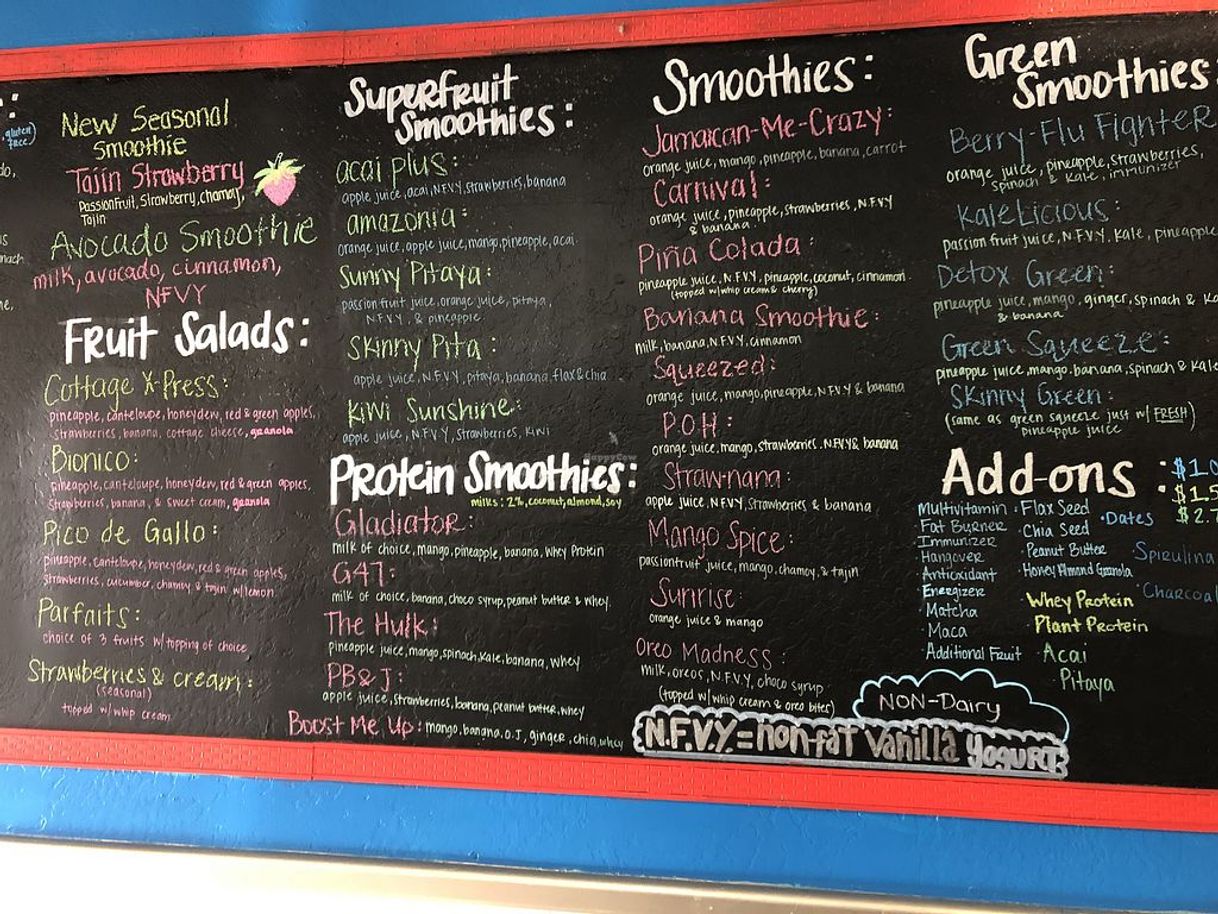 gluten
free)
New Seasonal
Smoothie
Tajin Strawberry
Passionfruit, Strawberry, chamoy,
Tajin
Avocado Smoothie
milk, avocado, cinnamon,
NFVY
Fruit Salads:
Cottage X-Press:
pineapple, canteloupe, honeydew, red & green apples,
strawberries, banana, cottage cheese, granola
Bionico:
pineapple, canteloupe, honeydew, red & green apples,
strawberries, banana, & sweet cream, granola
Pico de Gallo:
pineapple, canteloupe, honeydew, red & green apples,
strawberries, cucumber, chamoy & tajin w/lemon
Parfaits:
choice of 3 fruits w/topping of choice
Strawberries & cream:
(seasonal)
topped w/ whip cream
Superfruit
Smoothies:
acai plus:
apple juice, acai, N.F.V.Y, strawberries, banana
amazonia:
orange juice, apple juice, mango, pineapple, acai
Sunny Pitaya:
passion fruit juice, orange juice, pitaya,
N.F.V.Y. & pineapple
Skinny Pita:
apple juice, N.F.V.Y, pitaya, banana, flax & chia
Kiwi Sunshine:
apple juice, N.F.V.Y, strawberries, kiwi
Protein Smoothies:
milks: 2%, coconut, almond, soy
Gladiator:
milk of choice, mango, pineapple, banana, whey protein
G47:
milk of choice, banana, choco syrup, peanut butter & whey
The Hulk:
pineapple juice, mango, spinach, kale, banana, whey
PB&J:
apple juice, strawberries, banana, peanut butter, whey
Boost Me Up: mango, banana, O.J, ginger, chia, whey
Smoothies:
Jamaican-Me-Crazy:
orange juice, mango, pineapple, banana, carrot
Carnival:
orange juice, pineapple, strawberries, N.F.V.Y
& banana
Piña Colada:
pineapple juice, N.F.V.Y, pineapple, coconut, cinnamon
(topped w/whip cream & cherry)
Banana Smoothie:
milk, banana, N.F.V.Y, cinnamon
Squeezed:
orange juice, mango, pineapple, N.F.V.Y & banana
P.O.H:
orange juice, mango, strawberries, N.F.V.Y & banana
Straw-nana:
apple juice, N.F.V.Y, strawberries & banana
Mango Spice:
passionfruit juice, mango, chamoy, & tajin
Sunrise:
orange juice & mango
Oreo Madness:
milk, oreos, N.F.V.Y, choco syrup
(topped w/whip cream & oreo bites)
NON-Dairy
N.F.V.Y. = non-fat vanilla yogurt
Green
Smoothies:
Berry-Flu Fighter
orange juice, pineapple, strawberries,
spinach & kale, immunizer
Kalelicious:
passion fruit juice, N.F.V.Y, kale, pineapple
Detox Green:
pineapple juice, mango, ginger, spinach & ka
& banana
Green Squeeze:
pineapple juice, mango, banana, spinach & kale
Skinny Green:
(same as green squeeze just w/ FRESH)
pineapple juice
Add-ons:
$1.0
$1.5
$2.7
Multivitamin
Fat Burner
Immunizer
Hangover
Antioxidant
Energizer
· Matcha
· Maca
· Additional Fruit
· Flax Seed
· Chia Seed
· Peanut Butter
· Honey Almond Granola
· Whey Protein
· Plant Protein
· Acai
· Pitaya
· Dates
· Spirulina
· Charcoal